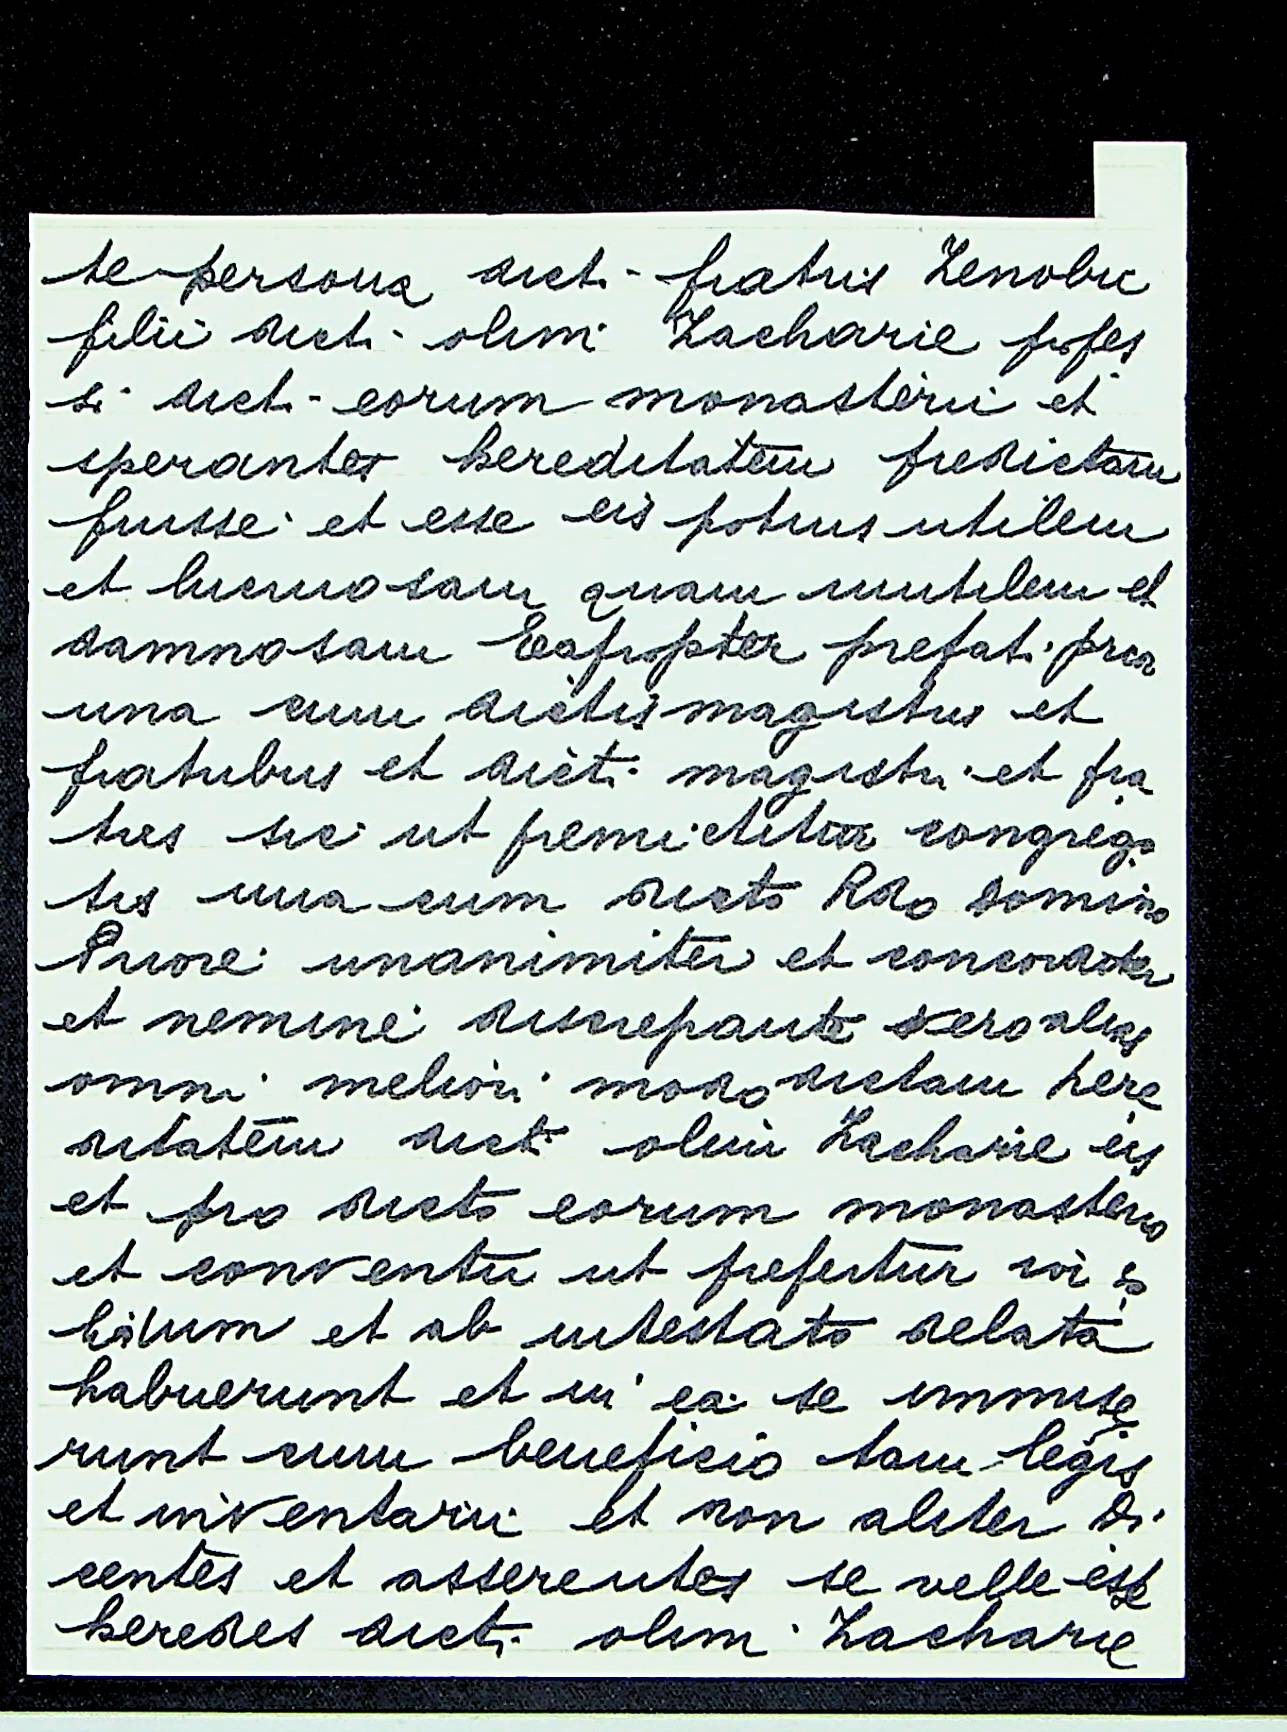 te persona dicti fratris Zenobii
filii dicti olim Zacharie profes
si dicti eorum monasterii et
sperantes hereditatem predictam
fuisse et esse eis potius utilem
et lucruosam quam inutilem et
damnosam Eapropter prefati prior
una cum dictis magistris et
fratribus et dicti magistri et fra
tres sic ut premictitur congrega
tis una cum dicto Rdo domino
Priore unanimiter et concorditer
et nemine discrepante vero alias
omni meliori modo dictam here
ditatem dicti olim Zacharie eis
et pro dicto eorum monasterio
et conventu ut prefertur
et ab intestato delata
habuerunt et in ea se immise
runt cum beneficio tam legis
et inventarii et non aliter di
centes et asserentes se velle esse
heredes dicti olim Zacharie